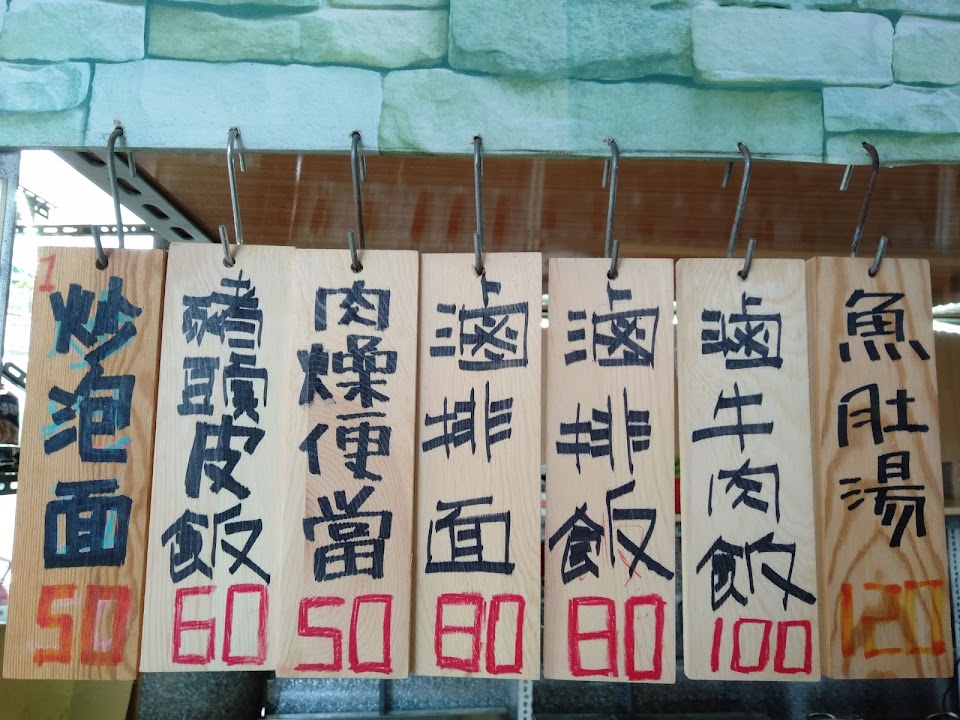 1
炒泡面
50
豬頭皮飯
60
肉燥便當
50
滷排面
80
滷排飯
80
滷牛肉飯
100
魚肚湯
120